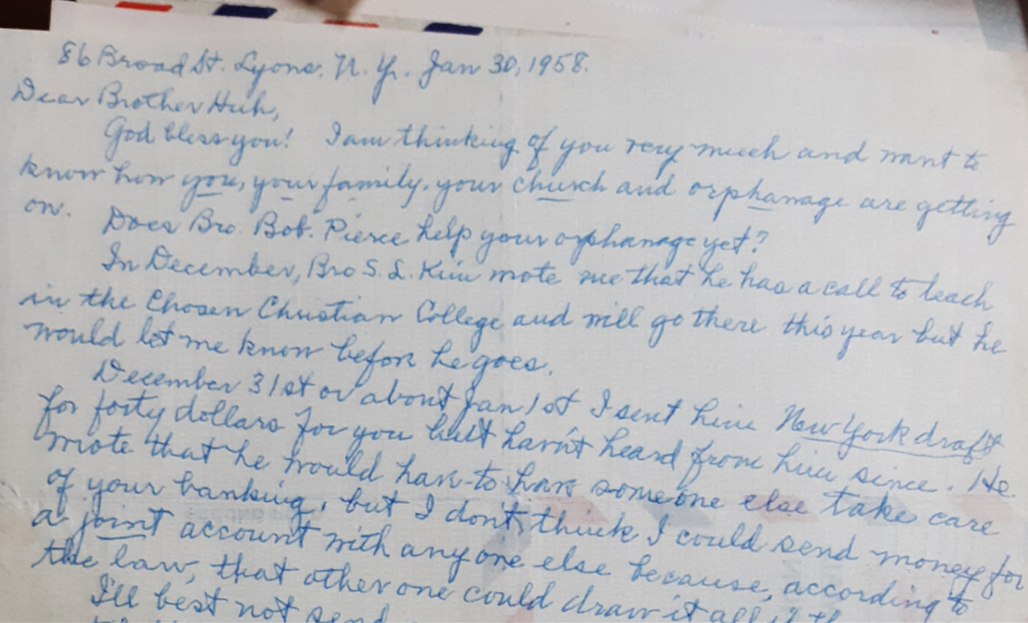 86 Broad St. Lyons, N. Y. Jan 30, 1958.
Dear Brother Huh,
God bless you! I am thinking of you very much and want to
know how you, your family, your church and orphanage are getting
on. Does Bro. Bob. Pierce help your orphanage yet?
In December, Bro S. L. Kim wrote me that he has a call to teach
in the Chosen Christian College and will go there this year but he
would let me know before he goes.
December 31st or about Jan 1st I sent him New York draft
for forty dollars for you but havn't heard from him since. He
wrote that he would have to have someone else take care
of your banking, but I don't think I could send money for
a joint account with anyone else because, according to
the law, that other one could draw it all if
I'll best not send